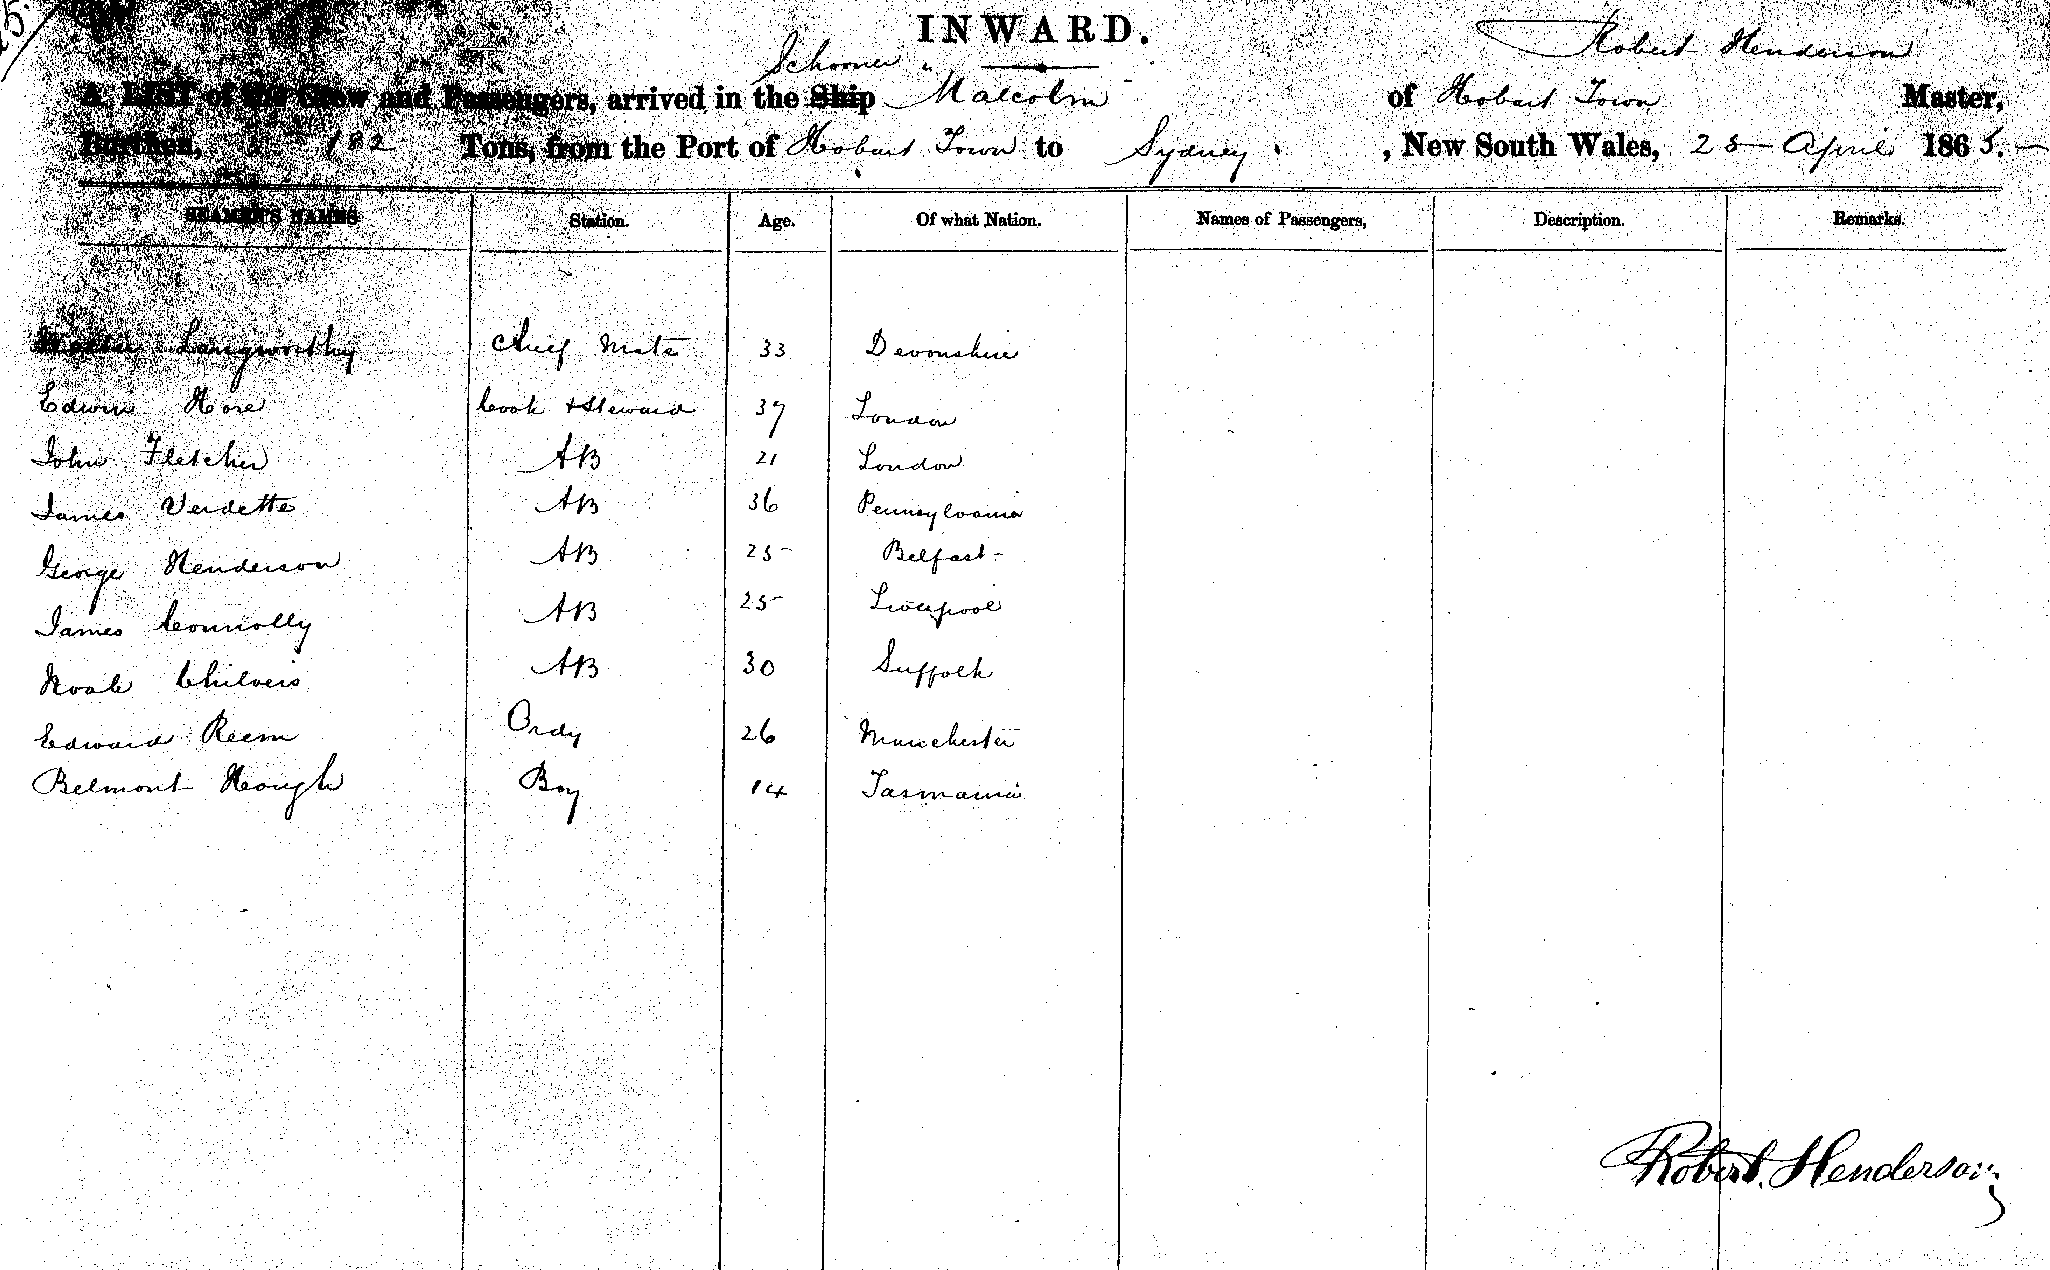 INWARD.
Robert Henderson
Schooner "
A LIST of the Crew and Passengers, arrived in the Ship Malcolm of Hobart Town Master,
Burthen, 182 Tons, from the Port of Hobart Town to Sydney, New South Wales, 25 April 1865.
SEAMEN'S NAMES Station. Age. Of what Nation. Names of Passengers, Description. Remarks.
Langworthy Chief Mate 33 Devonshire
Edwin Hore Cook & Steward 37 London
John Fletcher AB 21 London
James Verdette AB 36 Pennsylvania
George Henderson AB 25 Belfast
James Connolly AB 25 Liverpool
Noah Chilvers AB 30 Suffolk
Edward Reem Ordy 26 Manchester
Belmont Hough Boy 14 Tasmania
Robert Henderson